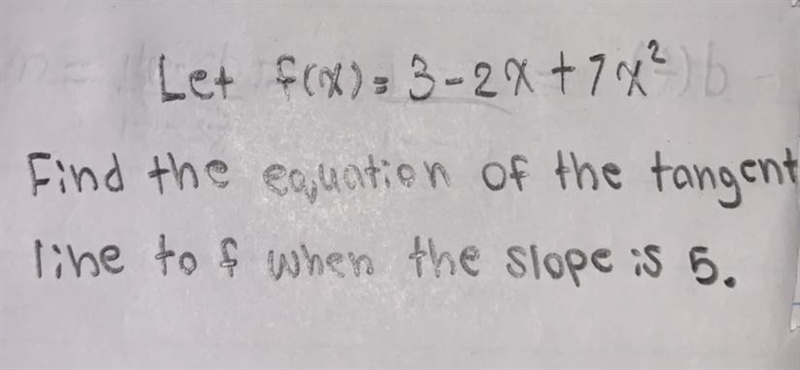 Let f(x) = 3 - 2x + 7x²
Find the equation of the tangent
line to f when the slope is 5.